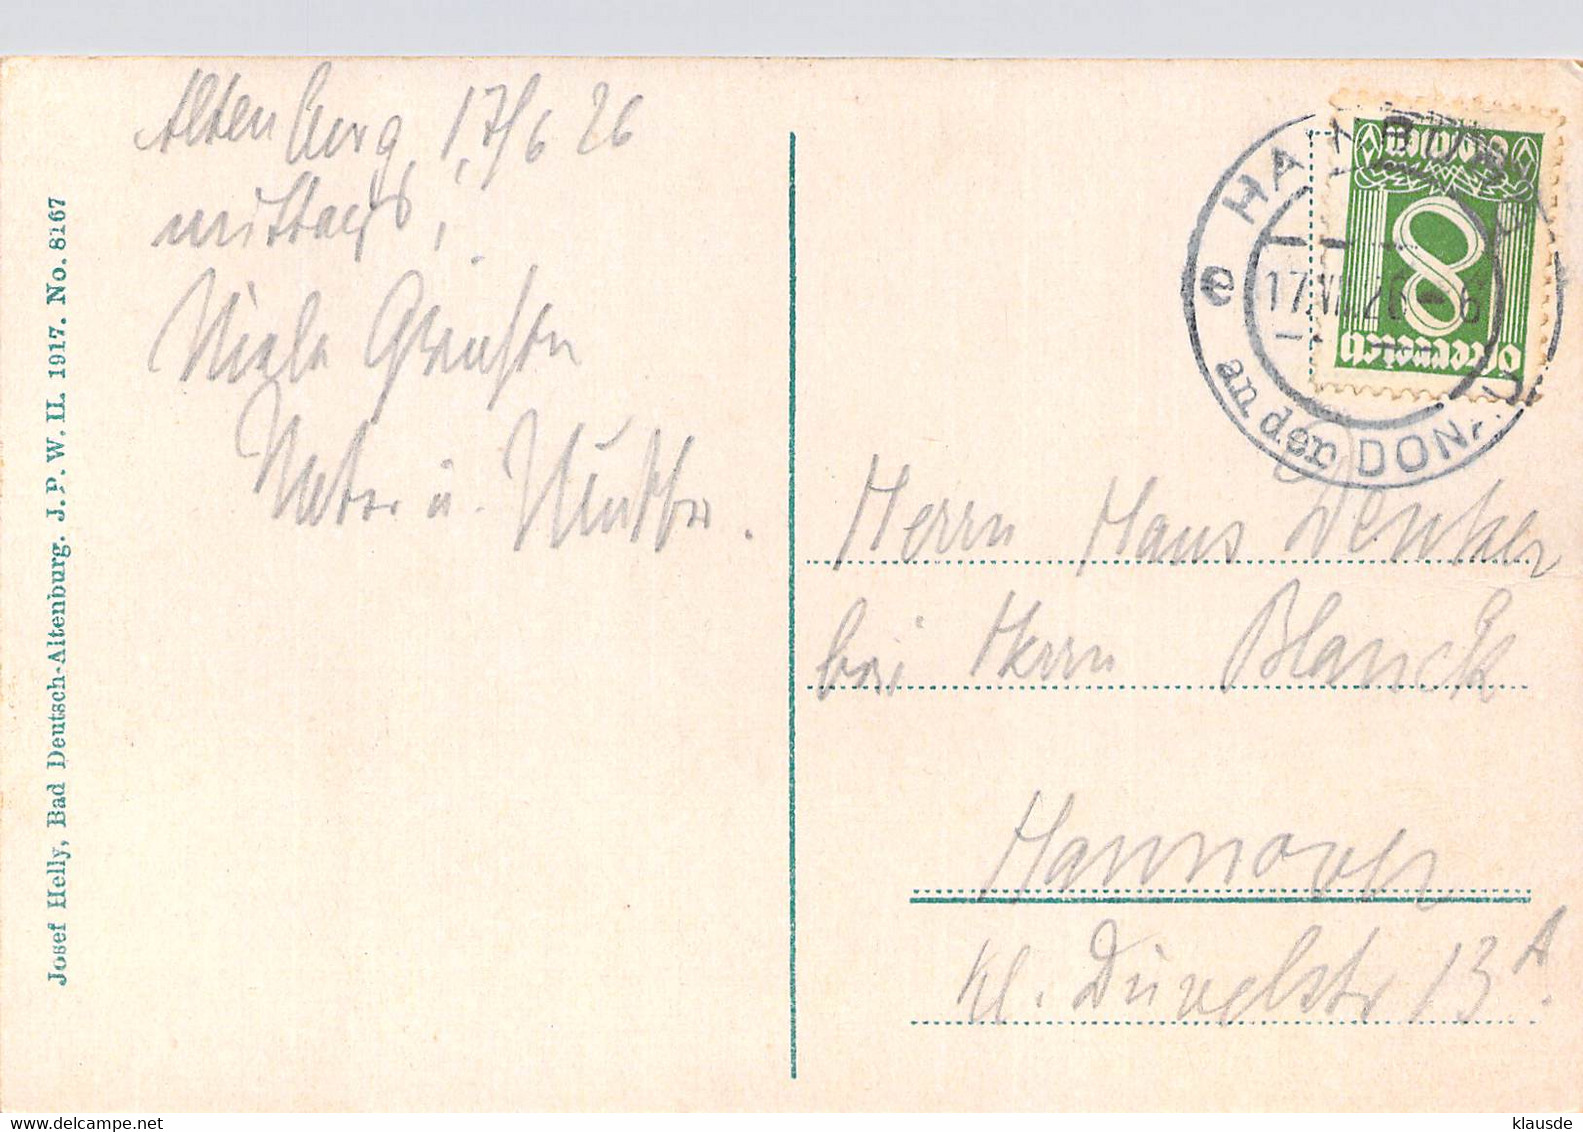 Altenburg, 17/6 26
mittags,
Viele Grüße von
Vater u. Mutter.
Josef Helly, Bad Deutsch-Altenburg. J. P. W. II. 1917. No. 8167
HAINBURG
17.VI.26-6
an der DONAU
8
Groschen
Österreich
Herrn Hans Denker
bei Herrn Blanck
Hannover
Kl. Düvelstr 13 A.
klausde